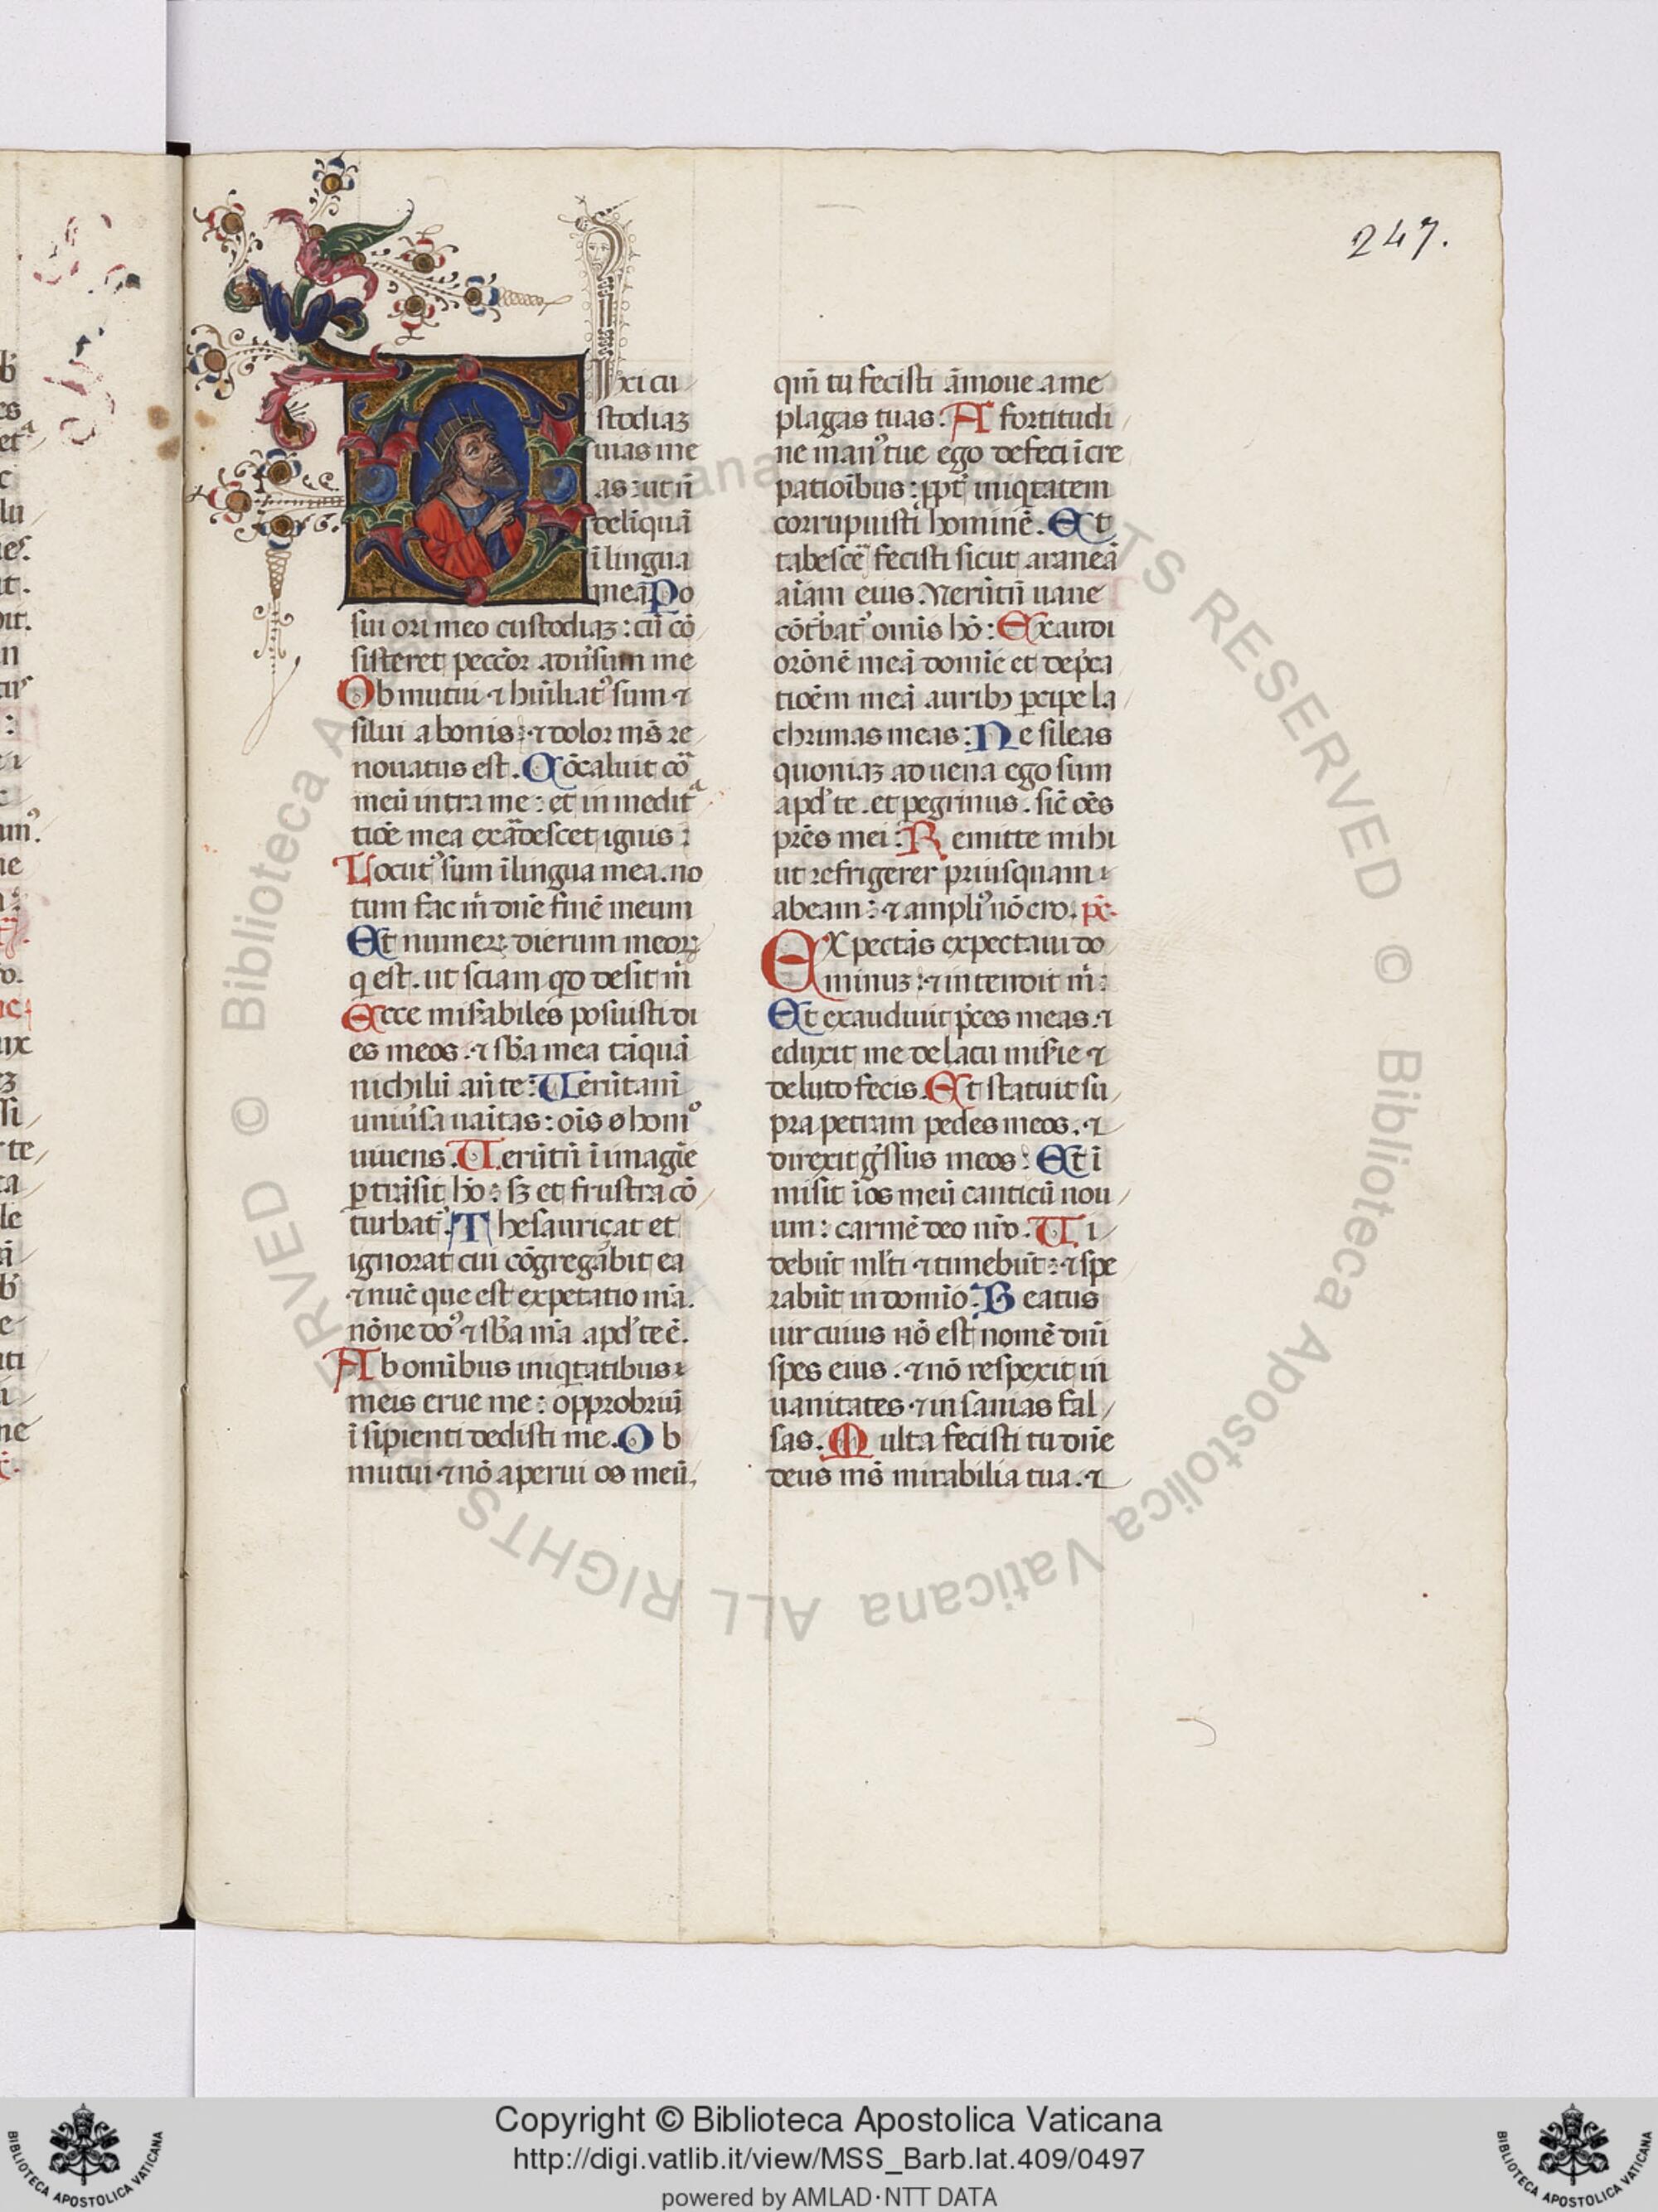 247.
Ixi cu
stodiaʒ
uias me
as: ut ñ
deliquā
ī lingua
meā Po
sui ori meo custodiaʒ: cū cō
sisteret peccōr aduẽsum me
Ob mutui ⁊ humīliat᾽ sum ⁊
silui a bonis: ⁊ dolor mẽs re
nouatus est. Cōcaluit cō
meū intra me: et in medita
tiōe mea exādescet ignis:
Locut᾽ sum ī lingua mea. no
tum fac m̄ dñe finē meum
Et numerꝝ dierum meorꝝ
q̄ est. ut sciam qd desit m̄
Ecce misabiles posuisti di
es meos. ⁊ sb̄a mea tāquā
nichilū añ te: Uerūtam̄
uniūsa uāitas: oīs homo
uiuens. Uerūtñ ī imagīe
ꝑ trāsit hō: sʒ et frustra cō
turbat᾽. Thesauriçat et
ignorat cui cōgregabit ea
⁊ nūc que est expetatio mā.
nōne do᾽ ⁊ sb̄a mā apd᾽ te ē.
Ab omībus iniqtatibus
meis erue me: opprobriū
ī sipienti dedisti me. Ob
mutui ⁊ nō aperui os meū,
qm̄ tu fecisti āmoue a me
plagas tuas: A fortitudi
ne man᾽ tue ego defeci ī cre
patiōibus: ꝓpt᾽ iniqtatem
corrupuisti hominē. Et
tabescē fecisti sicut araneā
aīam eius. Uerūtñ uane
cōt᾽bat᾽ omīs hō: Exaudi
orōnē meā domīe et dep̄ca
tiōem meā auribꝫ ꝑcipe la
chrimas meas: Ne sileas
quoniaʒ aduena ego sum
apd᾽ te. et ꝑegrinus. sic̄ oēs
prēs mei: Remitte mihi
ut refrigerer priusquam
abeam: ⁊ ampli᾽ nō ero. p̄c.
Expectās expectaui do
minuʒ: ⁊ intendit m̄:
Et exaudiuit p̄ces meas. ⁊
eduxit me de lacu misīe ⁊
de luto fecis. Et statuit su
pra petram pedes meos. ⁊
direxit g̃ssus meos: Et ī
misit ī os meū canticū nou
um: carmē deo nr̄o. Ui
debūt ml᾽ti ⁊ timebūt: ⁊ spe
rabūt in domīo: Beatus
uir cuius nō est nomē dñi
spes eius. ⁊ nō respexit in
uanitates ⁊ insanias fal
sas. Multa fecisti tu dñe
deus mẽs mirabilia tua. ⁊
© Biblioteca Apostolica Vaticana ALL RIGHTS RESERVED © Biblioteca Apostolica Vaticana ALL RIGHTS RESERVED
Copyright © Biblioteca Apostolica Vaticana
http://digi.vatlib.it/view/MSS_Barb.lat.409/0497
powered by AMLAD·NTT DATA
BIBLIOTECA APOSTOLICA VATICANA
BIBLIOTECA APOSTOLICA VATICANA